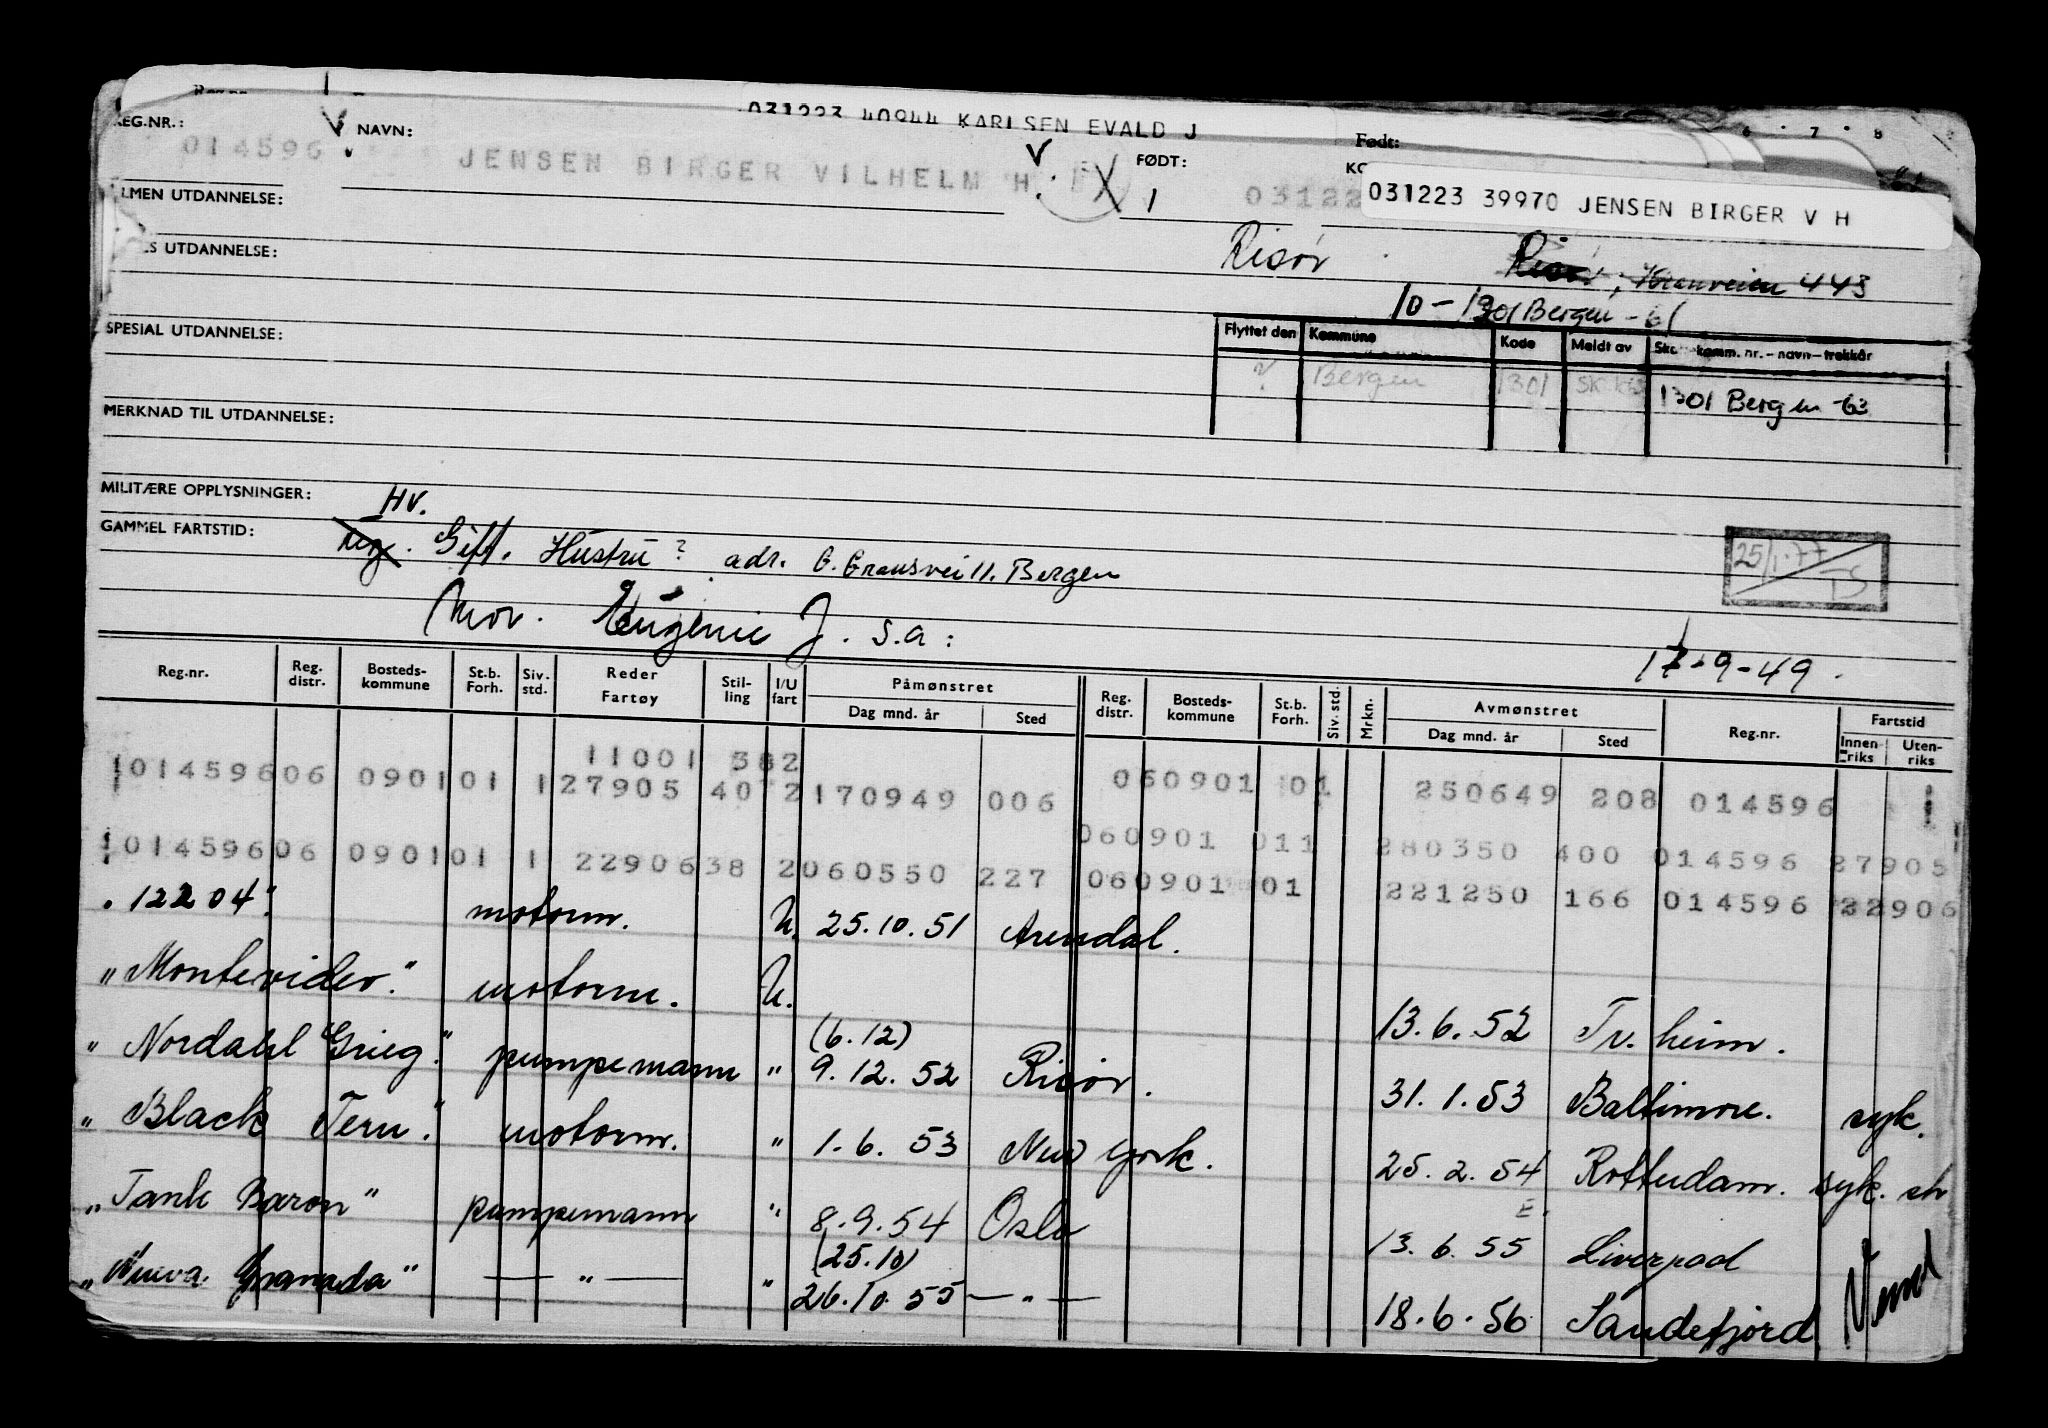 031223 40944 KARLSEN EVALD J
REG.NR.: NAVN: FØDT: Født:
014596 JENSEN BIRGER VILHELM H.
031223 39970 JENSEN BIRGER V H
LMEN UTDANNELSE:
S UTDANNELSE:
Risør Risør, 443
10 - 1301 Bergen - 61
SPESIAL UTDANNELSE:
Flyttet den Kommune Kode Meldt av komm. nr. - navn - trekkår
? Bergen 1301 1301 Bergen -63
MERKNAD TIL UTDANNELSE:
MILITÆRE OPPLYSNINGER: HV.
GAMMEL FARTSTID:
Ug. Gift. Hustru? adr. Bergen
25/1-77 TS
Mor. Eugenie J. s.a:
17-9-49.
Reg.nr. Reg. distr. Bosteds-kommune St.b. Forh. Siv. std. Reder Fartøy Stil-ling I/U fart Påmønstret Dag mnd. år Sted Reg. distr. Bosteds-kommune St.b. Forh. Siv. std. Mrkn. Avmønstret Dag mnd. år Sted Reg.nr. Fartstid Innen-riks Uten-riks
11001 382
01459606 090101 1 27905 40 2 170949 006 060901 01 250649 208 014596
060901 011 280350 400 014596 27905
01459606 090101 1 2290638 2060550 227 060901 01 221250 166 014596 22906
" 12204" motorm. U. 25.10.51 Arendal.
"Montevideo" motorm. U. 13.6.52 Tr. heim.
(6.12)
"Nordahl Grieg" pumpemann " 9.12.52 Risør. 31.1.53 Baltimore. syk.
"Black Tern." motorm. " 1.6.53 New York. 25.2.54 Rotterdam. syk.
E.
"Tank Baron" pumpemann " 8.9.54 Oslo 13.6.55 Liverpool
(25.10)
"Nueva Granada" — " — " 26.10.55 — " — 18.6.56 Sandefjord
Vend